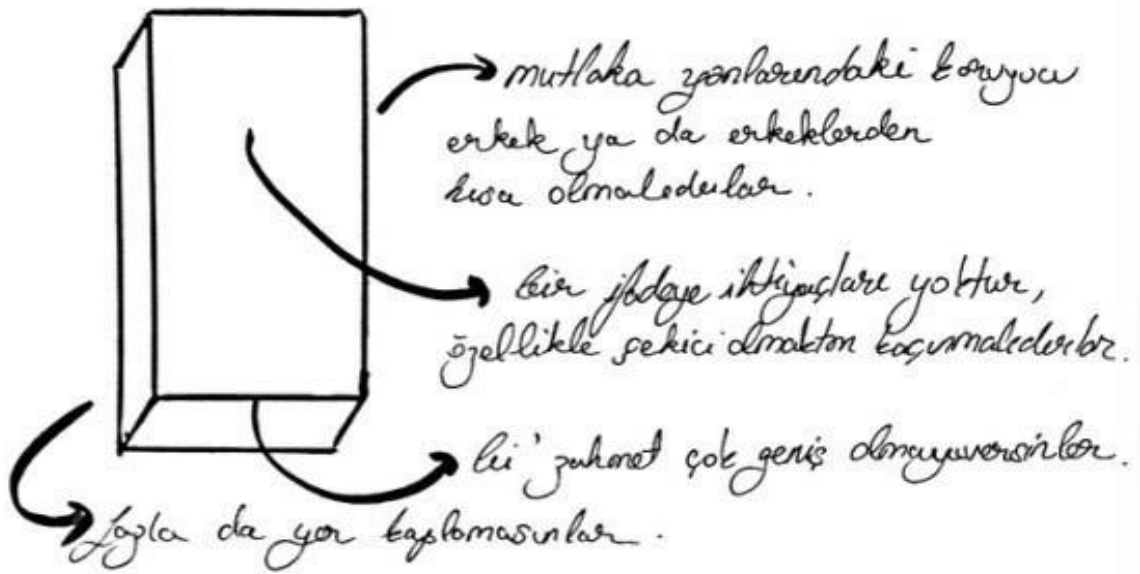 mutlaka yanlarındaki koruyucu
erkek ya da erkeklerden
kısa olmalıdırlar.
bir ifadeye ihtiyaçları yoktur,
özellikle çekici olmaktan kaçınmalıdırlar.
bi' zahmet çok geniş olmayıversinler.
fazla da yer kaplamasınlar.